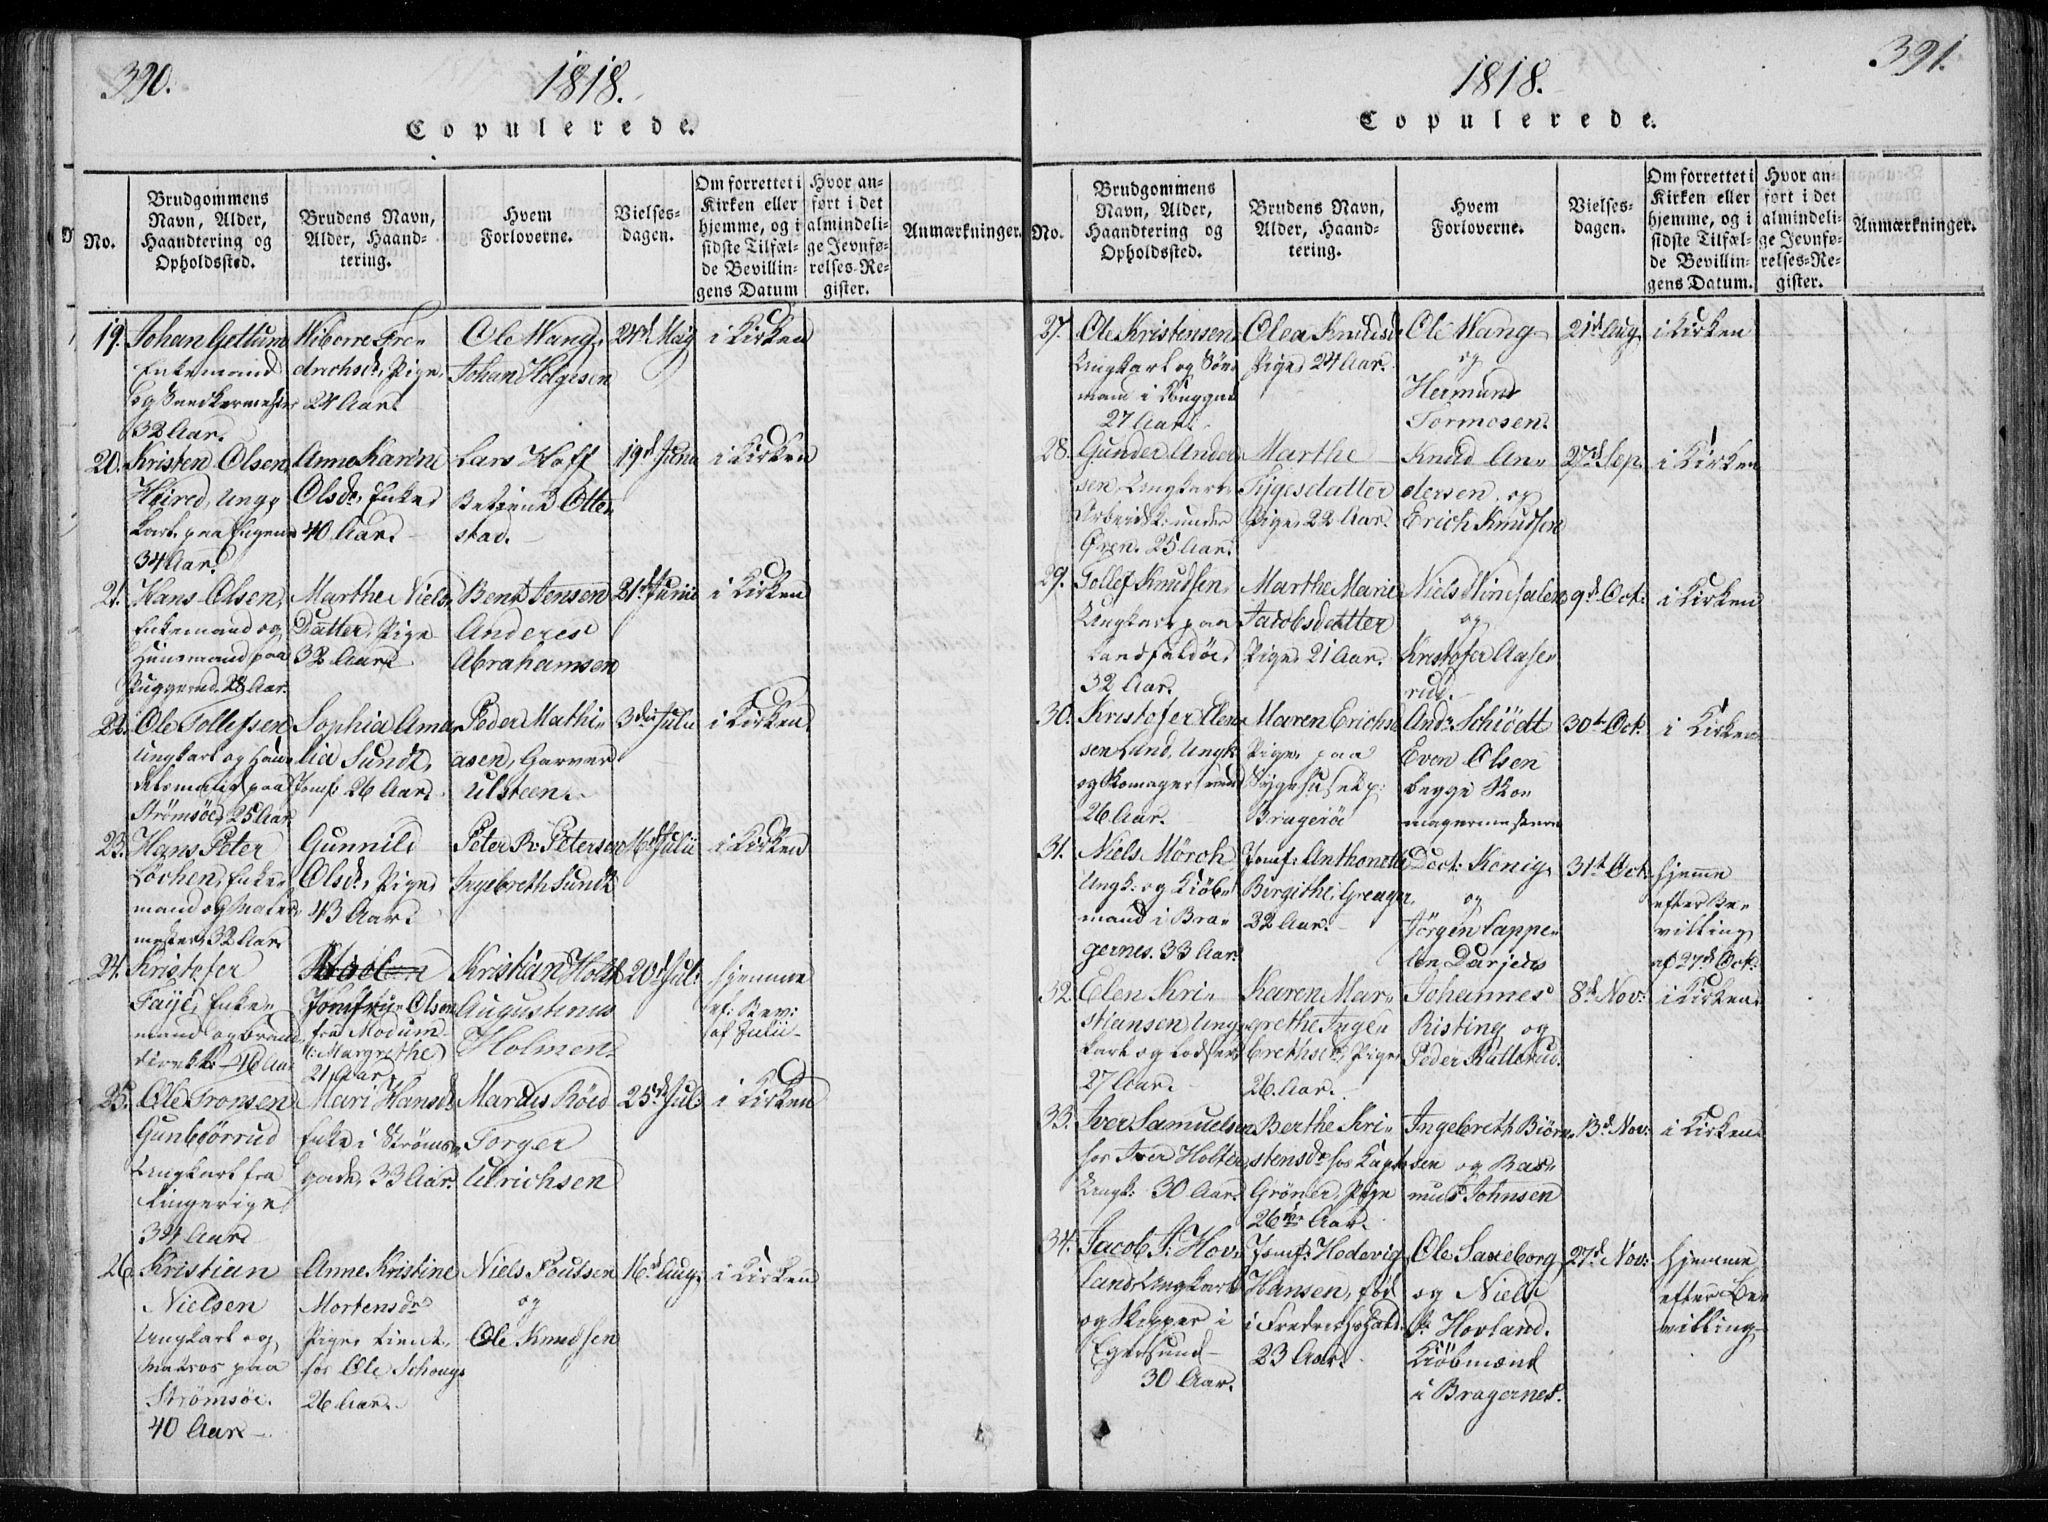 390.
1818.
Copulerede.
No.
Brudgommens
Navn, Alder,
Haandtering og
Opholdssted.
Brudens Navn,
Alder, Haand-
tering.
Hvem
Forloverne.
Vielses-
dagen.
Om forrettet i
Kirken eller
hjemme, og i
sidste Tilfæl-
de Bevillin-
gens Datum
Hvor an-
ført i det
almindeli-
ge Jevnfø-
relses-Re-
gister.
Anmærkninger.
19.
Johan Gettum
Enkemand
og Snedkermester
32 Aar.
Wiborre Fre-
drichsd. Pige
24 Aar.
Ole Wang,
Johan Holgesen
24d Maj
i Kirken
20.
Kristen Olsen
Heired, Ung-
karl paa Eigene
34 Aar.
Anne Karine
Olsdr, Enke
40 Aar.
Lars Hoff
Otte-
stad.
19d Juni
i Kirken
21.
Hans Olsen,
Enkemand og
Huusmand paa
28 Aar.
Marthe Niels
Datter, Pige
32 Aar
Bent Jensen
Anderes
Abrahamsen
21d Junii
i Kirken
22.
Ole Tollefsen
Ungkarl og Han-
delsmand paa
Strømsöe, 25 Aar
Sophia Ama-
lia Sundt,
Jomf. 26 Aar.
Peder Mathi-
asen, Garver
Ulsteen.
3die Julii
i Kirken
23.
Hans Peter
Lövhen, Enke-
mand og Maler-
mester, 32 Aar
Gunnild
Olsdr, Pige
43 Aar.
Peter R. Petersen
Ingebreth Sundt
Julii
i Kirken
24.
Kristofer
Faye, Enke-
mand og Brand-
direkt. 46 Aar
Jomfrue Olsen
fra Modum
Margrethe
21 Aar
Kristian Holst
Augustinus
Holmen.
20d Jul:
Hjemme
ef: Bev:
af Julii
25.
Ole Tronsen
Gunbiörrud
Ungkarl fra
Ringerige
34 Aar
Mari Hansd.
Enke i Ströms-
gode, 33 Aar.
Marcus Röed
Torger
Ulrichsen
25d Jul:
i Kirken
26.
Kristian
Nielsen
Ungkarl og
Matros paa
Strømsöe.
40 Aar
Anne Kristine
Mortensdr
Pige, tient
hos Ole Schoug
26 Aar.
Niels Poulsen
og
Ole Knudsen
16d Aug.
i Kirken
391.
1818.
Copulerede.
No.
Brudgommens
Navn, Alder,
Haandtering og
Opholdssted.
Brudens Navn,
Alder, Haand-
tering.
Hvem
Forloverne.
Vielses-
dagen.
Om forrettet i
Kirken eller
hjemme, og i
sidste Tilfæl-
de Bevillin-
gens Datum.
Hvor an-
ført i det
almindeli-
ge Jevnfø-
relses-Re-
gister.
Anmærkninger.
27.
Ole Kristensen
Ungkarl og Söe-
mand i
27 Aar.
Olea Knudsd
Pige 24 Aar.
Ole Wang
og
Hermund
Tormosen.
21d Aug.
i Kirken
28.
Gunder Ander-
sen, Ungkarl
Arbeidsk: under
Øren. 25 Aar.
Marthe
Tygesdatter
Pige, 22 Aar.
Knud An-
dersen og
Erich Knudsen
27d Sep.
i Kirken
29.
Tollef Knudsen,
Ungkarl paa
Landfaldöe,
32 Aar.
Marthe Marie
Jacobsdatter
Pige, 21 Aar.
Niels Hinsalen
og
Kristofer Aase-
rud.
9d Oct.
i Kirken
30.
Kristofer Elen-
sen Lund, Ungk.
og Skomagersvend
26 Aar.
Maren Erichsd
Pige, paa
Sygehuset p:
Bragerö
Andr. Schiödt
Even Olsen
begge Sko-
magermestere
30te Oct.
i Kirken
31.
Niels Mörch
Ungk: og Kiöb-
mand i Bra-
gernes. 33 Aar.
Jomf: Anthonette
Birgithe Greager
32 Aar.
Doct: Kønig
og
Jörgen Cappe-
len Darjes
31te Oct.
Hjemme
efter Be-
villing
af 27d Oct.
32.
Elen Kri-
stiansen, Ung-
karl og Lodser
27 Aar.
Karen Mar-
grethe Inge-
brethsdr, Pige
26 Aar.
Johannes
Risting og
Peder Kallerud.
8d Nov:
i Kirken
33.
Iver Samuelsen
hos Iver Holter,
Ungk: 30 Aar.
Berthe Kri-
stensdr hos Capt.
Gröner, Pige
26 Aar.
Ingebreth Biörn-
sen og Ras-
mus Johnsen
13d Nov:
i Kirken
34.
Jacob P: Hov-
land, Ungkarl
og Skipper i
Egersund
30 Aar.
Jomf: Hedevig
Hansen, föd
i Fredrichshald.
23 Aar.
Ole Saxeborg
og Niels
P. Hovland.
Kiöbmænd
i Bragernes.
27d Nov:
Hjemme
efter Be-
villing